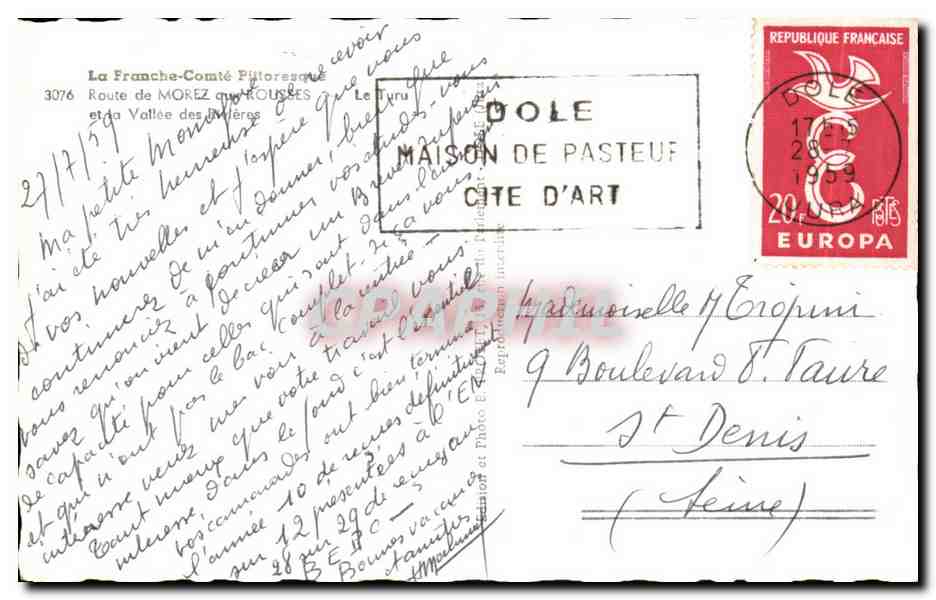 La Franche-Comté Pittoresque
3076 Route de MOREZ aux ROUSSES - Le Turu
et la Vallée des Rivières
27/7/59
Ma petite Monique
J'ai été très heureuse de recevoir
de vos nouvelles et j'espère que vous
continuerez de m'en donner, bien que
vous renonciez à continuer vos études - vous
savez qu'on vient de créer un Brevet supérieur
de capacité pour celles qui sont dans l'enseignement
et qui n'ont pas le bac complet - Si ça vous
intéresse, venez me voir à la rentrée -
Tant mieux que votre travail vous
intéresse, dans le fond c'est l'essentiel
vos camarades ont bien terminé
l'année 10 de reçues définitivement
sur 12 présentées à l'EN
28 sur 29 de reçues au
BEPC -
Bonnes vacances
et amitiés
DOLE
MAISON DE PASTEUR
CITE D'ART
REPUBLIQUE FRANÇAISE
20F POSTES
EUROPA
DOLE
28-7
1959
JURA
Mademoiselle M Tropini
9 Boulevard F. Faure
St Denis
(Seine)
Reproduction interdite
CPARAMA.COM